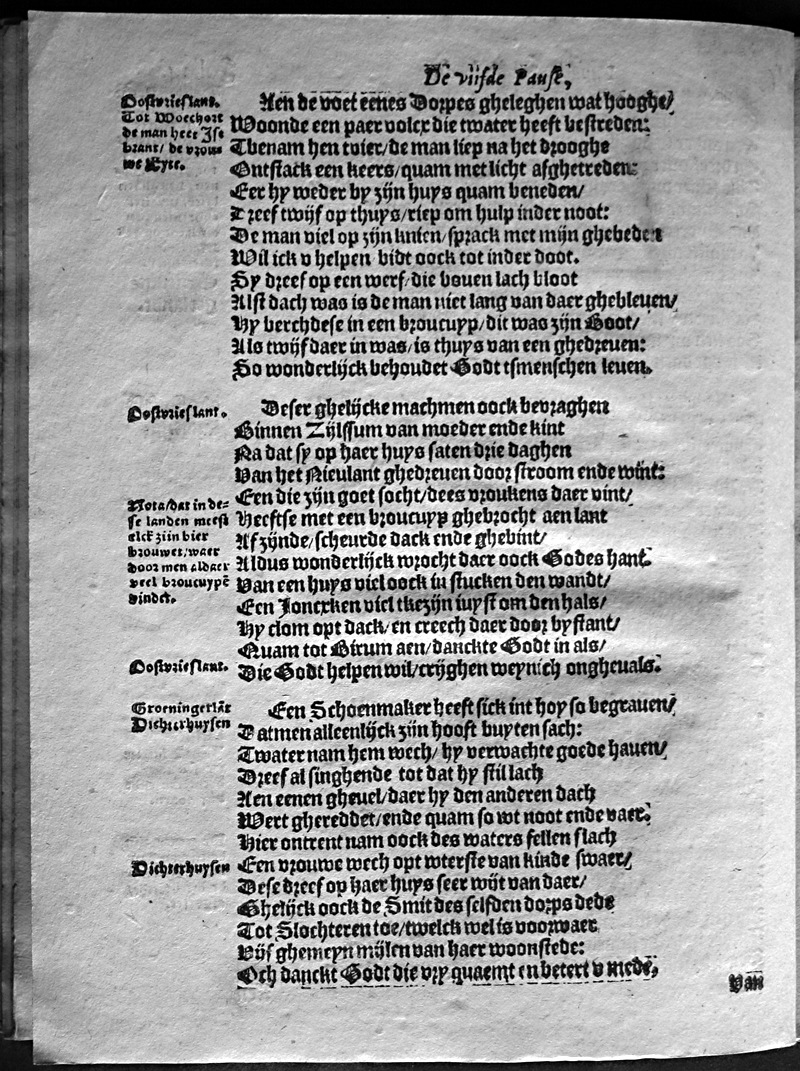 De vijfde Pause,
Oostvrieslant.
Tot Woechort
de man heet Jse
brant/ de vrou
we Eyte.
Aen de voet eenes Dorpes gheleghen wat hooghe/
Woonde een paer volcx die twater heeft bestreden:
Tbenam hen tvier/ de man liep na het drooghe
Ontstack een keers/ quam met licht afghetreden:
Eer hy weder by zijn huys quam beneden/
Dreef twijf op thuys/ riep om hulp inder noot:
De man viel op zijn knien/ sprack met mijn ghebeden
Wil ick v helpen bidt oock tot inder doot.
Sy dreef op een werf/ die bouen lach bloot
Alst dach was is de man niet lang van daer ghebleuen/
Hy berchdese in een broucupp/ dit was zijn Boot/
Als twijf daer in was/ is thuys van een ghedreuen:
So wonderlijck behoudet Godt tsmenschen leuen.
Oostvrieslant.
Deser ghelijcke machmen oock bevraghen
Binnen Zijlssum van moeder ende kint
Na dat sy op haer huys saten drie daghen
Van het Nieulant ghedreuen door stroom ende wint:
Nota/dat in de-
se landen meest
elck zijn bier
brouwet/waer
door men aldaer
veel broucuypē
vindet.
Een die zijn goet socht/ dees vroukens daer vint/
Heeftse met een broucupp ghebrocht aen lant
Afzijnde/ scheurde dack ende ghebint/
Aldus wonderlijck wrocht daer oock Godes hant.
Van een huys viel oock in stucken den wandt/
Een Joncxken viel tkezijn iuyst om den hals/
Hy clom opt dack/ en creech daer door bystant/
Quam tot Birum aen/ danckte Godt in als/
Oostvrieslant.
Die Godt helpen wil/ crijghen weynich ongheuals.
Groeningerlāt
Dichterhuysen
Een Schoenmaker heeft sick int hoy so begrauen/
Datmen alleenlijck zijn hooft buyten sach:
Twater nam hem wech/ hy verwachte goede hauen/
Dreef al singhende tot dat hy stil lach
Aen eenen gheuel/ daer hy den anderen dach
Wert ghereddet/ ende quam so wt noot ende vaer.
Hier ontrent nam oock des waters fellen slach
Dichterhuysen
Een vrouwe wech opt wterste van kinde swaer/
Dese dreef op haer huys seer wijt van daer/
Ghelijck oock de Smit des selfden dorps dede
Tot Slochteren toe/ twelck wel is voorwaer
Vijf ghemeyn mijlen van haer woonstede:
Och danckt Godt die vry quaemt en betert v mede.
Van